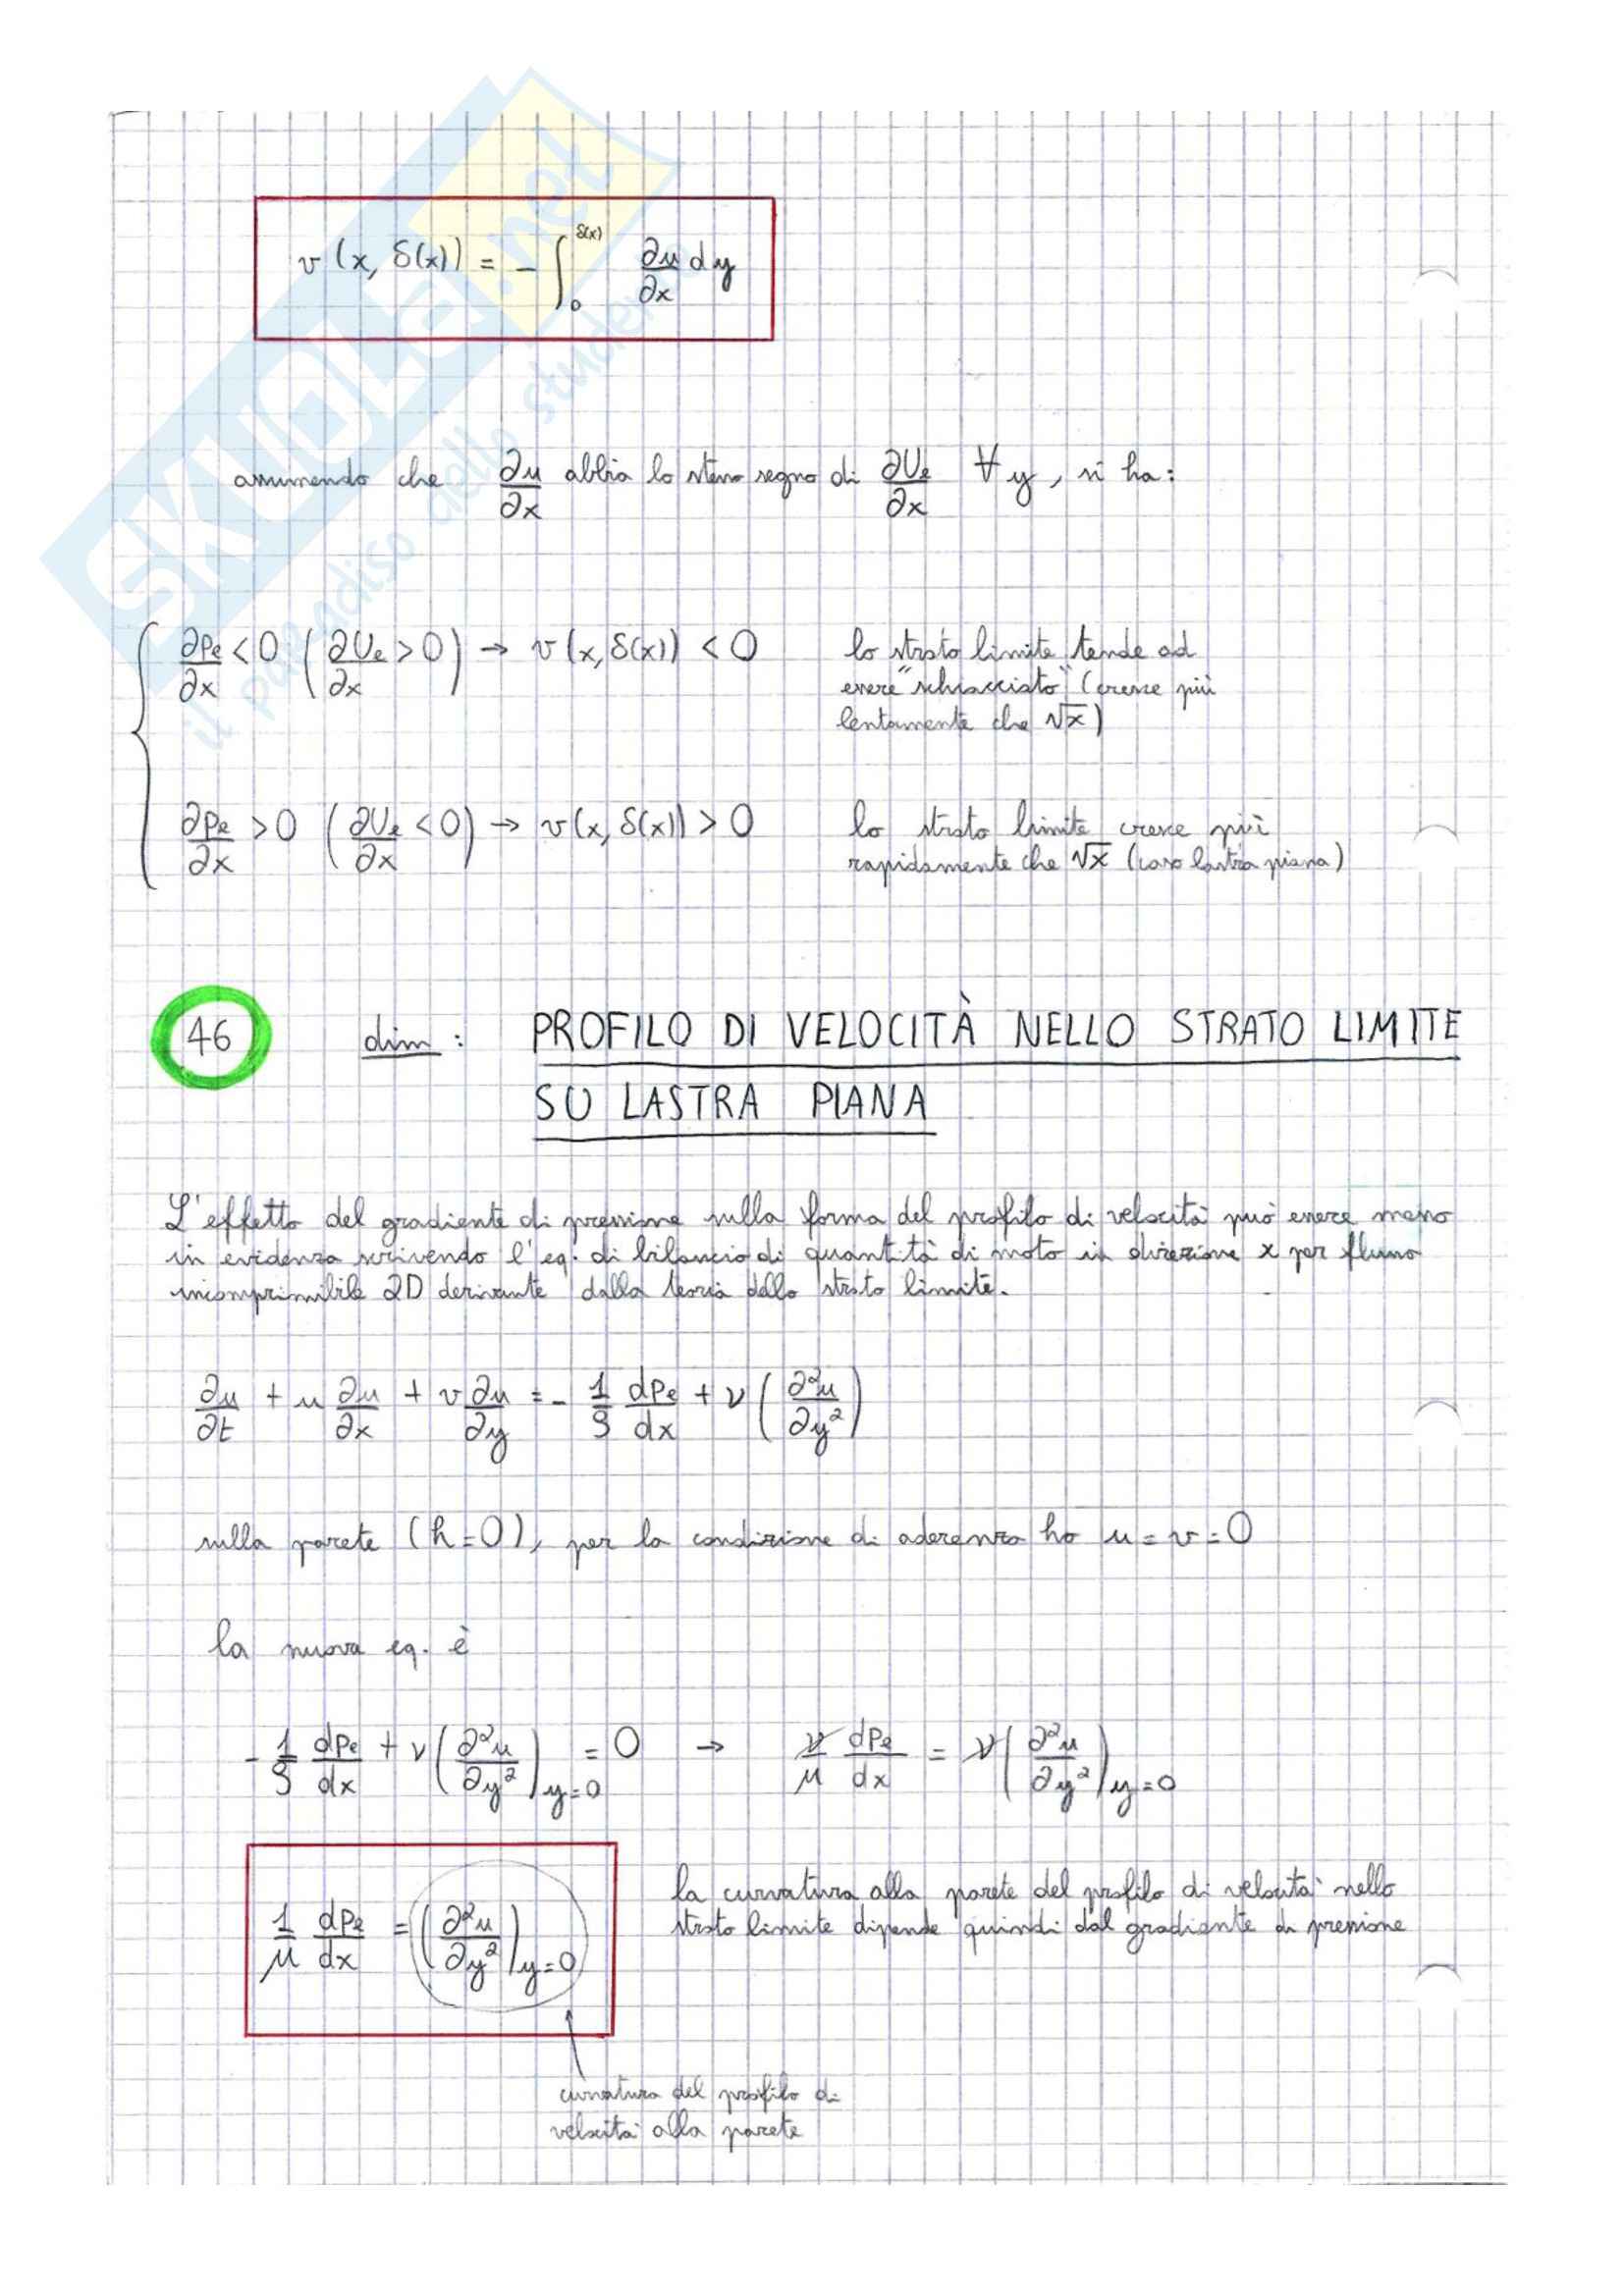 SKUOLA.net
il paradiso dello studente
v(x, δ(x)) = - ∫₀^δ(x) ∂u/∂x dy
assumendo che ∂u/∂x abbia lo stesso segno di ∂Ue/∂x ∀ y, si ha:
∂pe/∂x < 0 (∂Ue/∂x > 0) → v(x, δ(x)) < 0 lo strato limite tende ad
essere "schiacciato" (cresce più
lentamente che √x)
∂pe/∂x > 0 (∂Ue/∂x < 0) → v(x, δ(x)) > 0 lo strato limite cresce più
rapidamente che √x (caso lastra piana)
46 dim: PROFILO DI VELOCITÀ NELLO STRATO LIMITE
SU LASTRA PIANA
L'effetto del gradiente di pressione sulla forma del profilo di velocità può essere messo
in evidenza scrivendo l'eq. di bilancio di quantità di moto in direzione x per flusso
incomprimibile 2D derivante dalla teoria dello strato limite.
∂u/∂t + u ∂u/∂x + v ∂u/∂y = - 1/ρ dpe/dx + ν (∂²u/∂y²)
sulla parete (h=0), per la condizione di aderenza ho u = v = 0
la nuova eq. è
- 1/ρ dpe/dx + ν (∂²u/∂y²)y=0 = 0 → ν/μ dpe/dx = ν (∂²u/∂y²)y=0
1/μ dpe/dx = (∂²u/∂y²)y=0 la curvatura alla parete del profilo di velocità nello
strato limite dipende quindi dal gradiente di pressione
curvatura del profilo di
velocità alla parete